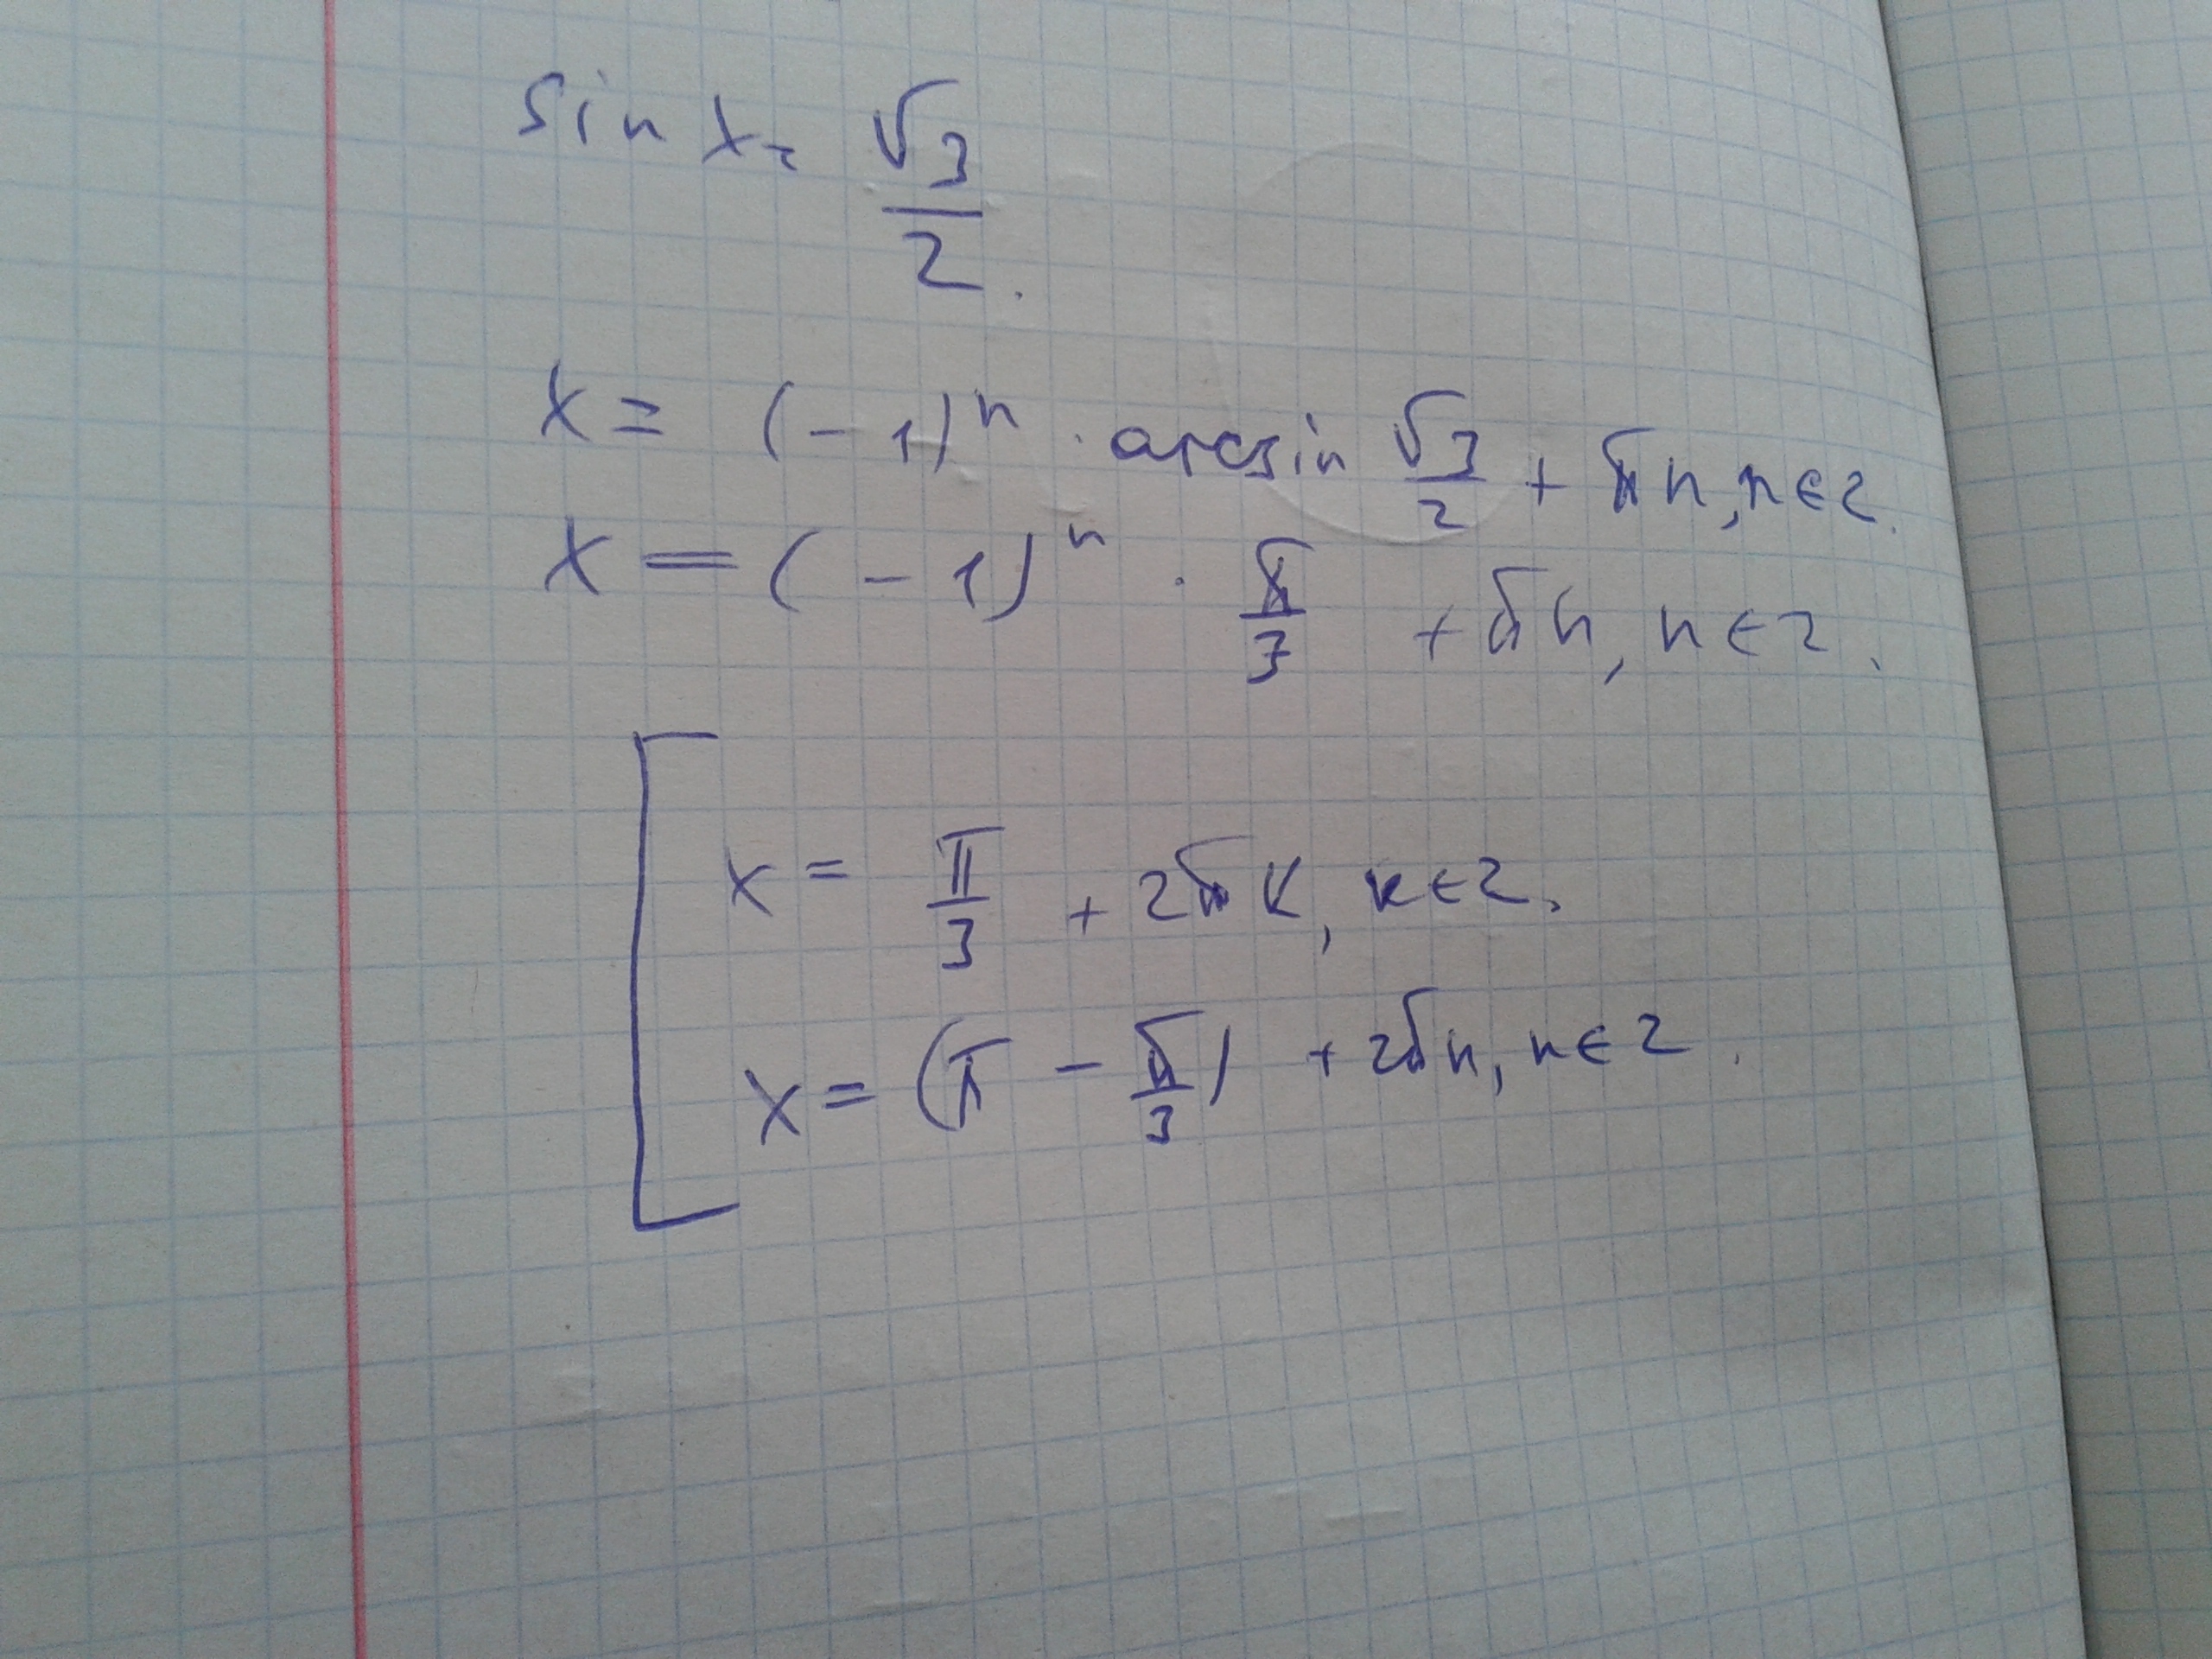 sin x = √3/2.
x = (-1)^n · arcsin √3/2 + πn, n ∈ Z.
x = (-1)^n · π/3 + πn, n ∈ Z.
[ x = π/3 + 2πk, k ∈ Z.
x = (π - π/3) + 2πn, n ∈ Z.